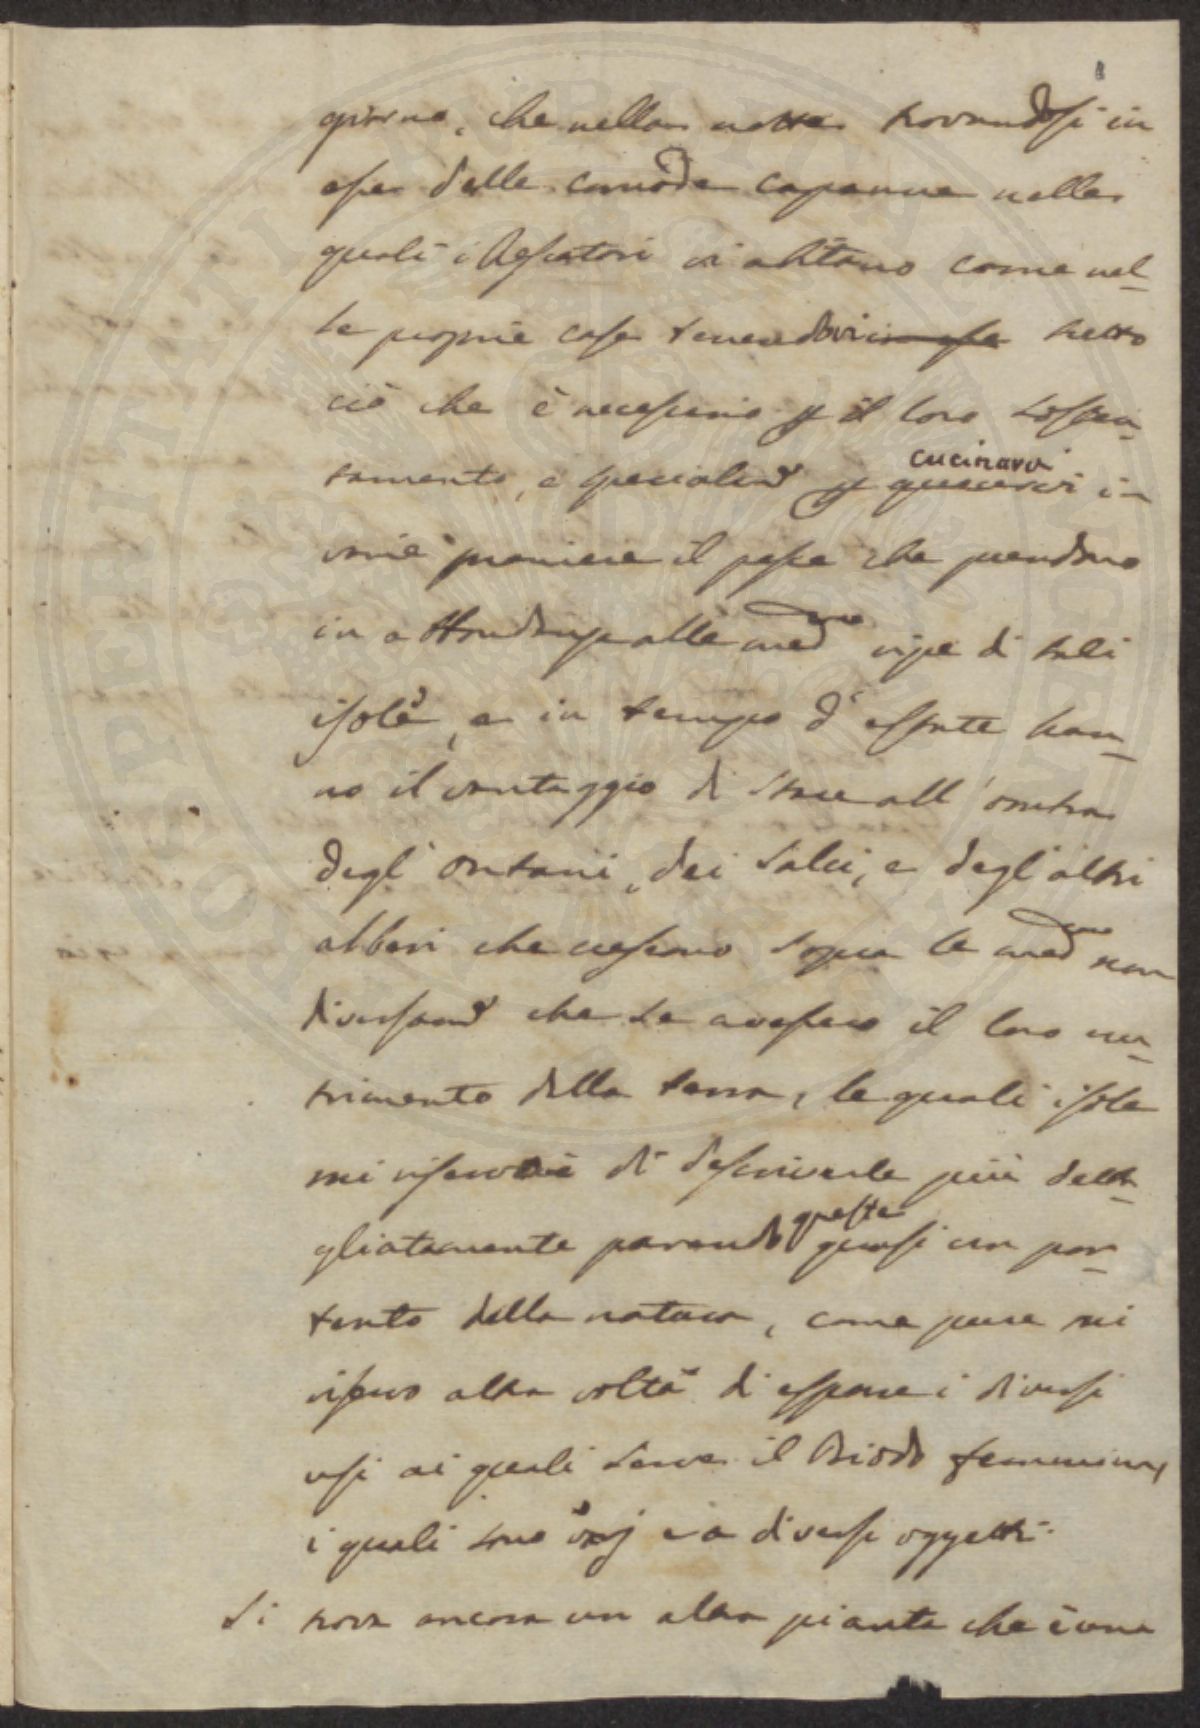 giorno, che nella notte trovandosi in
esse delle comode capanne nelle
quali i Pescatori vi abitano come nel-
le proprie case tenendovi tutto
ciò che è necessario p il loro sosten-
tamento, e specialmd p cucinarvi in
varie maniere il pesce che prendono
in alle medme ripe di tali
isole, e in tempo d'estate han-
no il vantaggio di stare all'ombra
degl'ontani, dei salci, e degl'altri
alberi che crescono sopra le medme non
diversamd che se avessero il loro nu-
trimento della terra, le quali isole
mi riserverò di descriverle più detta-
gliatamente parendo queste quasi un por-
tento della natura, come pure mi
riservo altra volta di esporre i diversi
usi ai quali serve il Briodo femmina,
i quali sono varj e a diversi oggetti.
Si trova ancora un altra pianta che è una